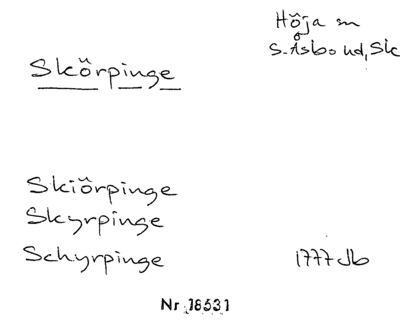 Höja sn
S. Åsbo hd, Sk
Skörpinge
Skiörpinge
Skyrpinge
Schyrpinge 1777 Jb
Nr 18531